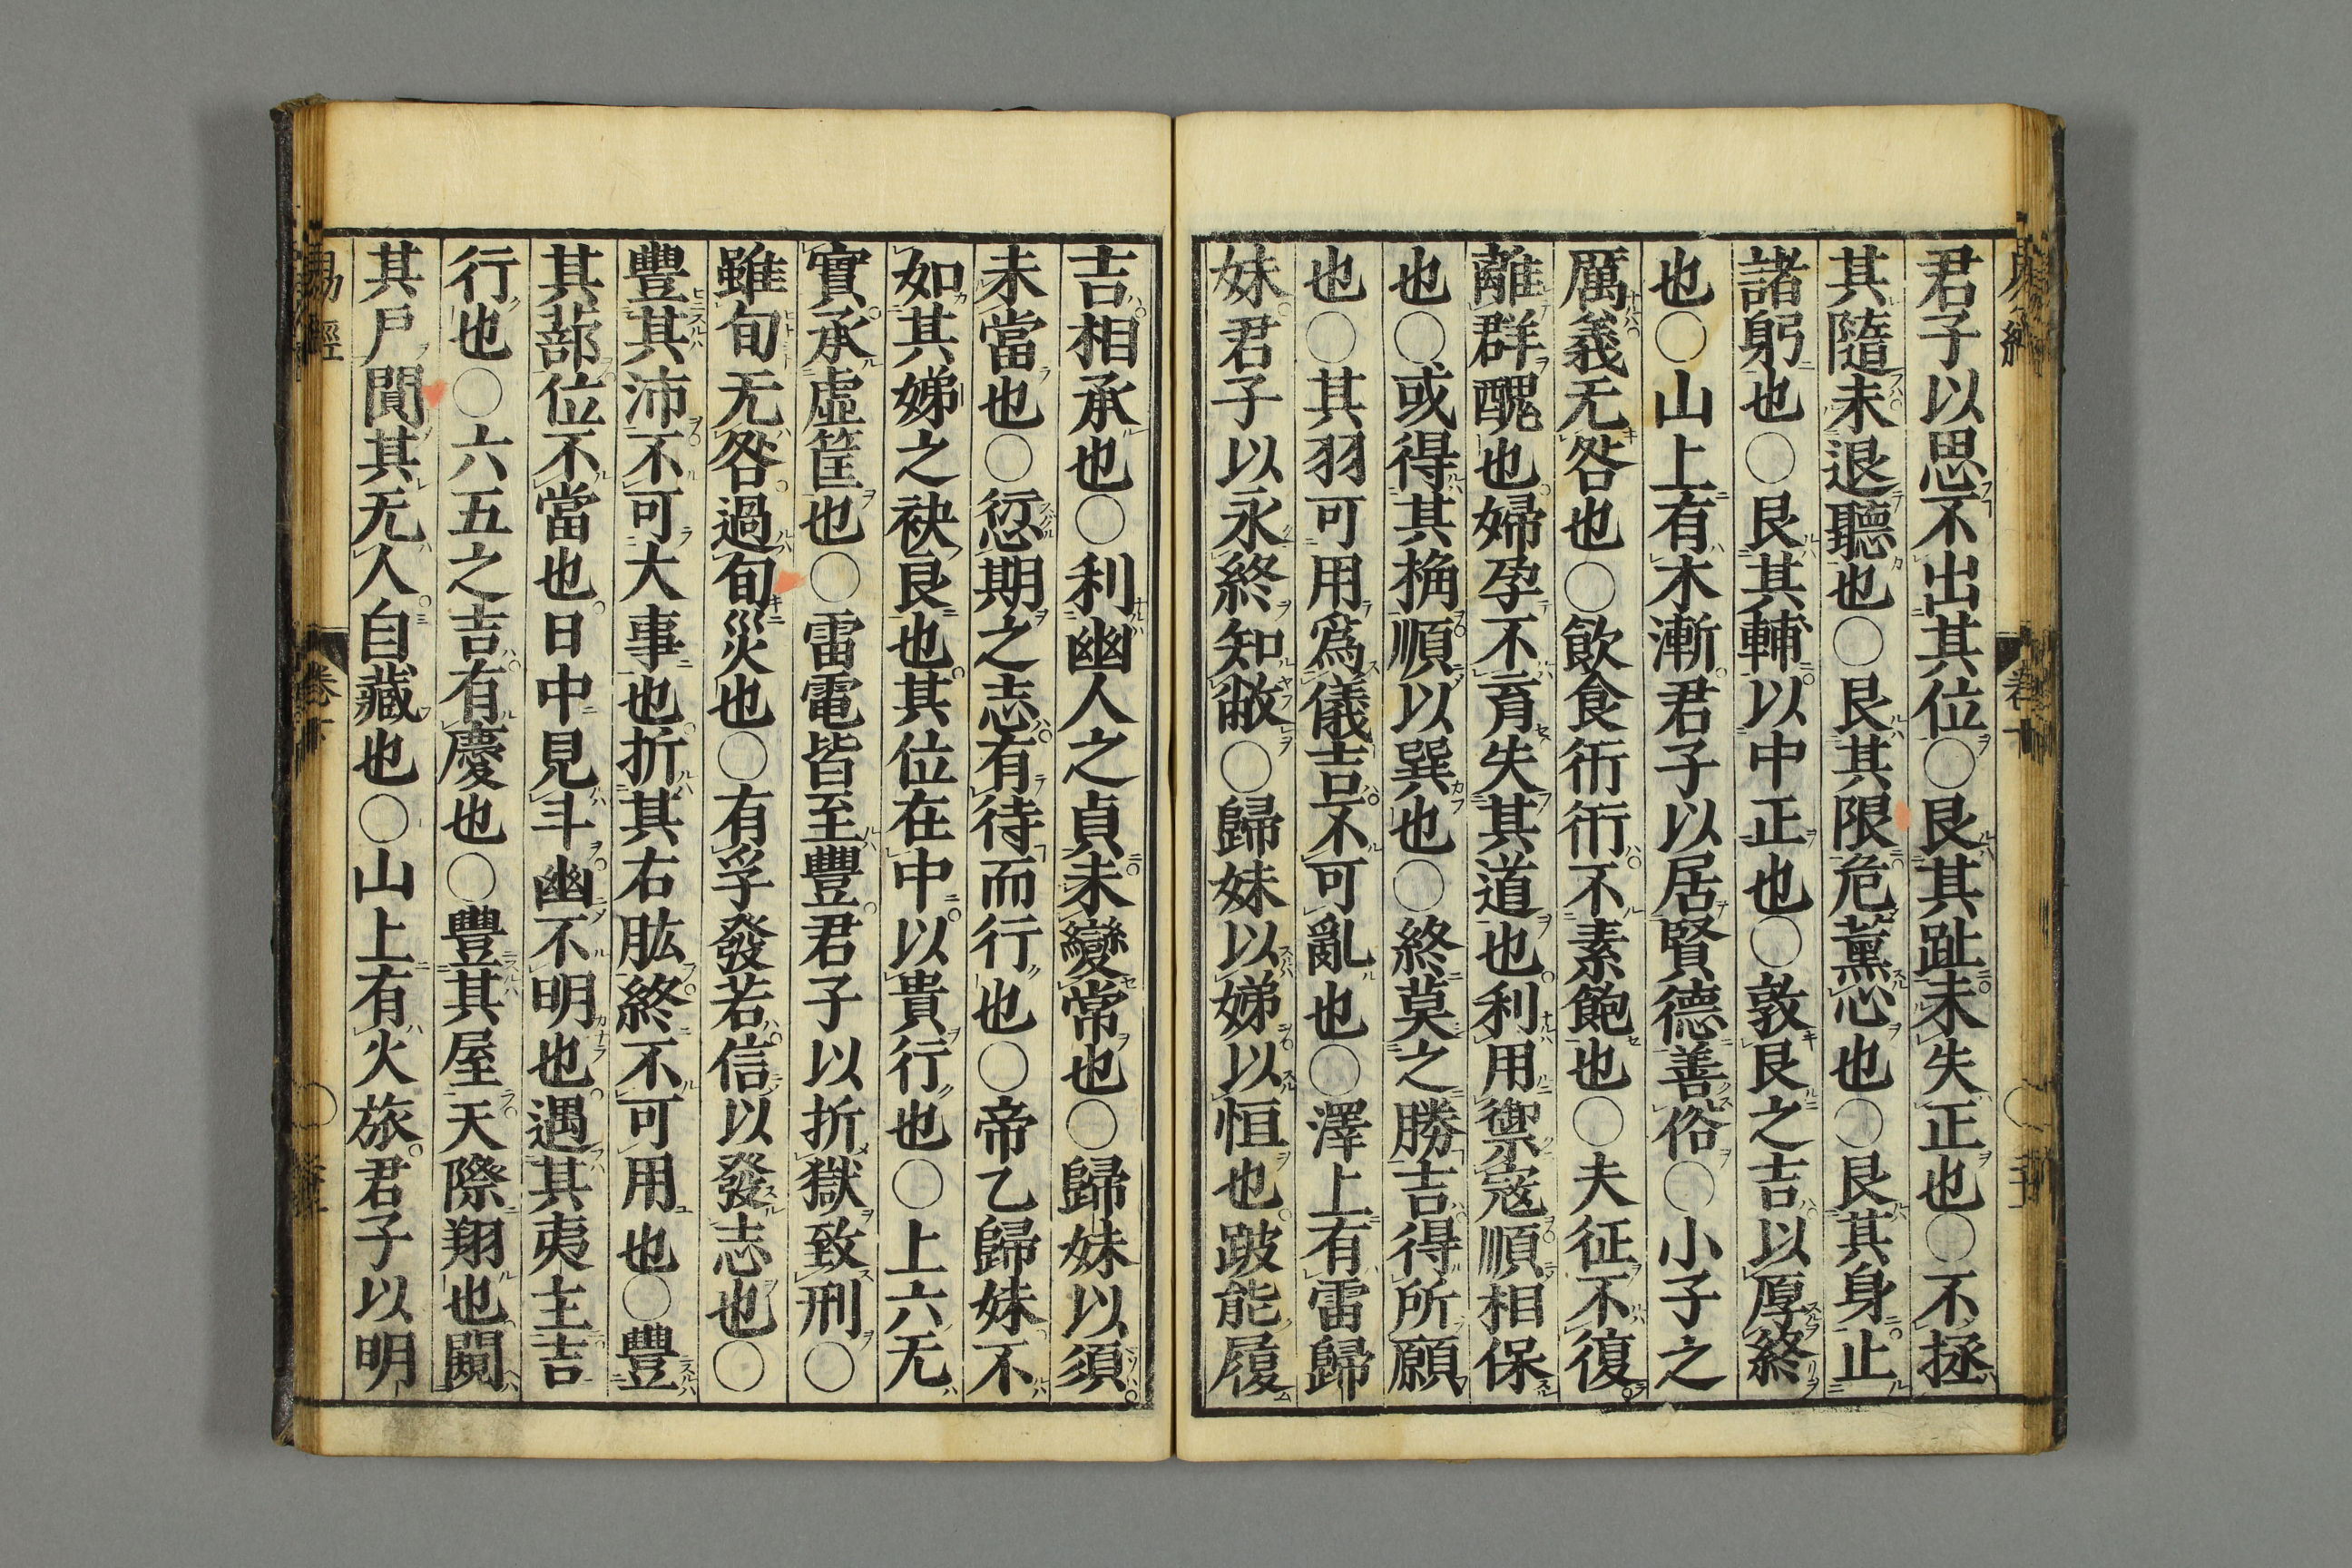 君子以思不出其位〇艮其趾未失正也〇不拯
其隨未退聽也〇艮其限危薰心也〇艮其身止
諸躬也〇艮其輔以中正也〇敦艮之吉以厚終
也〇山上有木漸君子以居賢德善俗〇小子之
厲義无咎也〇飲食衎衎不素飽也〇夫征不復
離群醜也婦孕不育失其道也利用禦寇順相保
也〇或得其桷順以巽也〇終莫之勝吉得所願
也〇其羽可用爲儀吉不可亂也〇澤上有雷歸
妹君子以永終知敝〇歸妹以娣以恒也跛能履
吉相承也〇利幽人之貞未變常也〇歸妹以須
未當也〇愆期之志有待而行也〇帝乙歸妹不
如其娣之袂良也其位在中以貴行也〇上六无
實承虛筐也〇雷電皆至豐君子以折獄致刑〇
雖旬无咎過旬災也〇有孚發若信以發志也〇
豐其沛不可大事也折其右肱終不可用也〇豐
其蔀位不當也日中見斗幽不明也遇其夷主吉
行也〇六五之吉有慶也〇豐其屋天際翔也闚
其戸闃其无人自藏也〇山上有火旅君子以明
易經
卷下